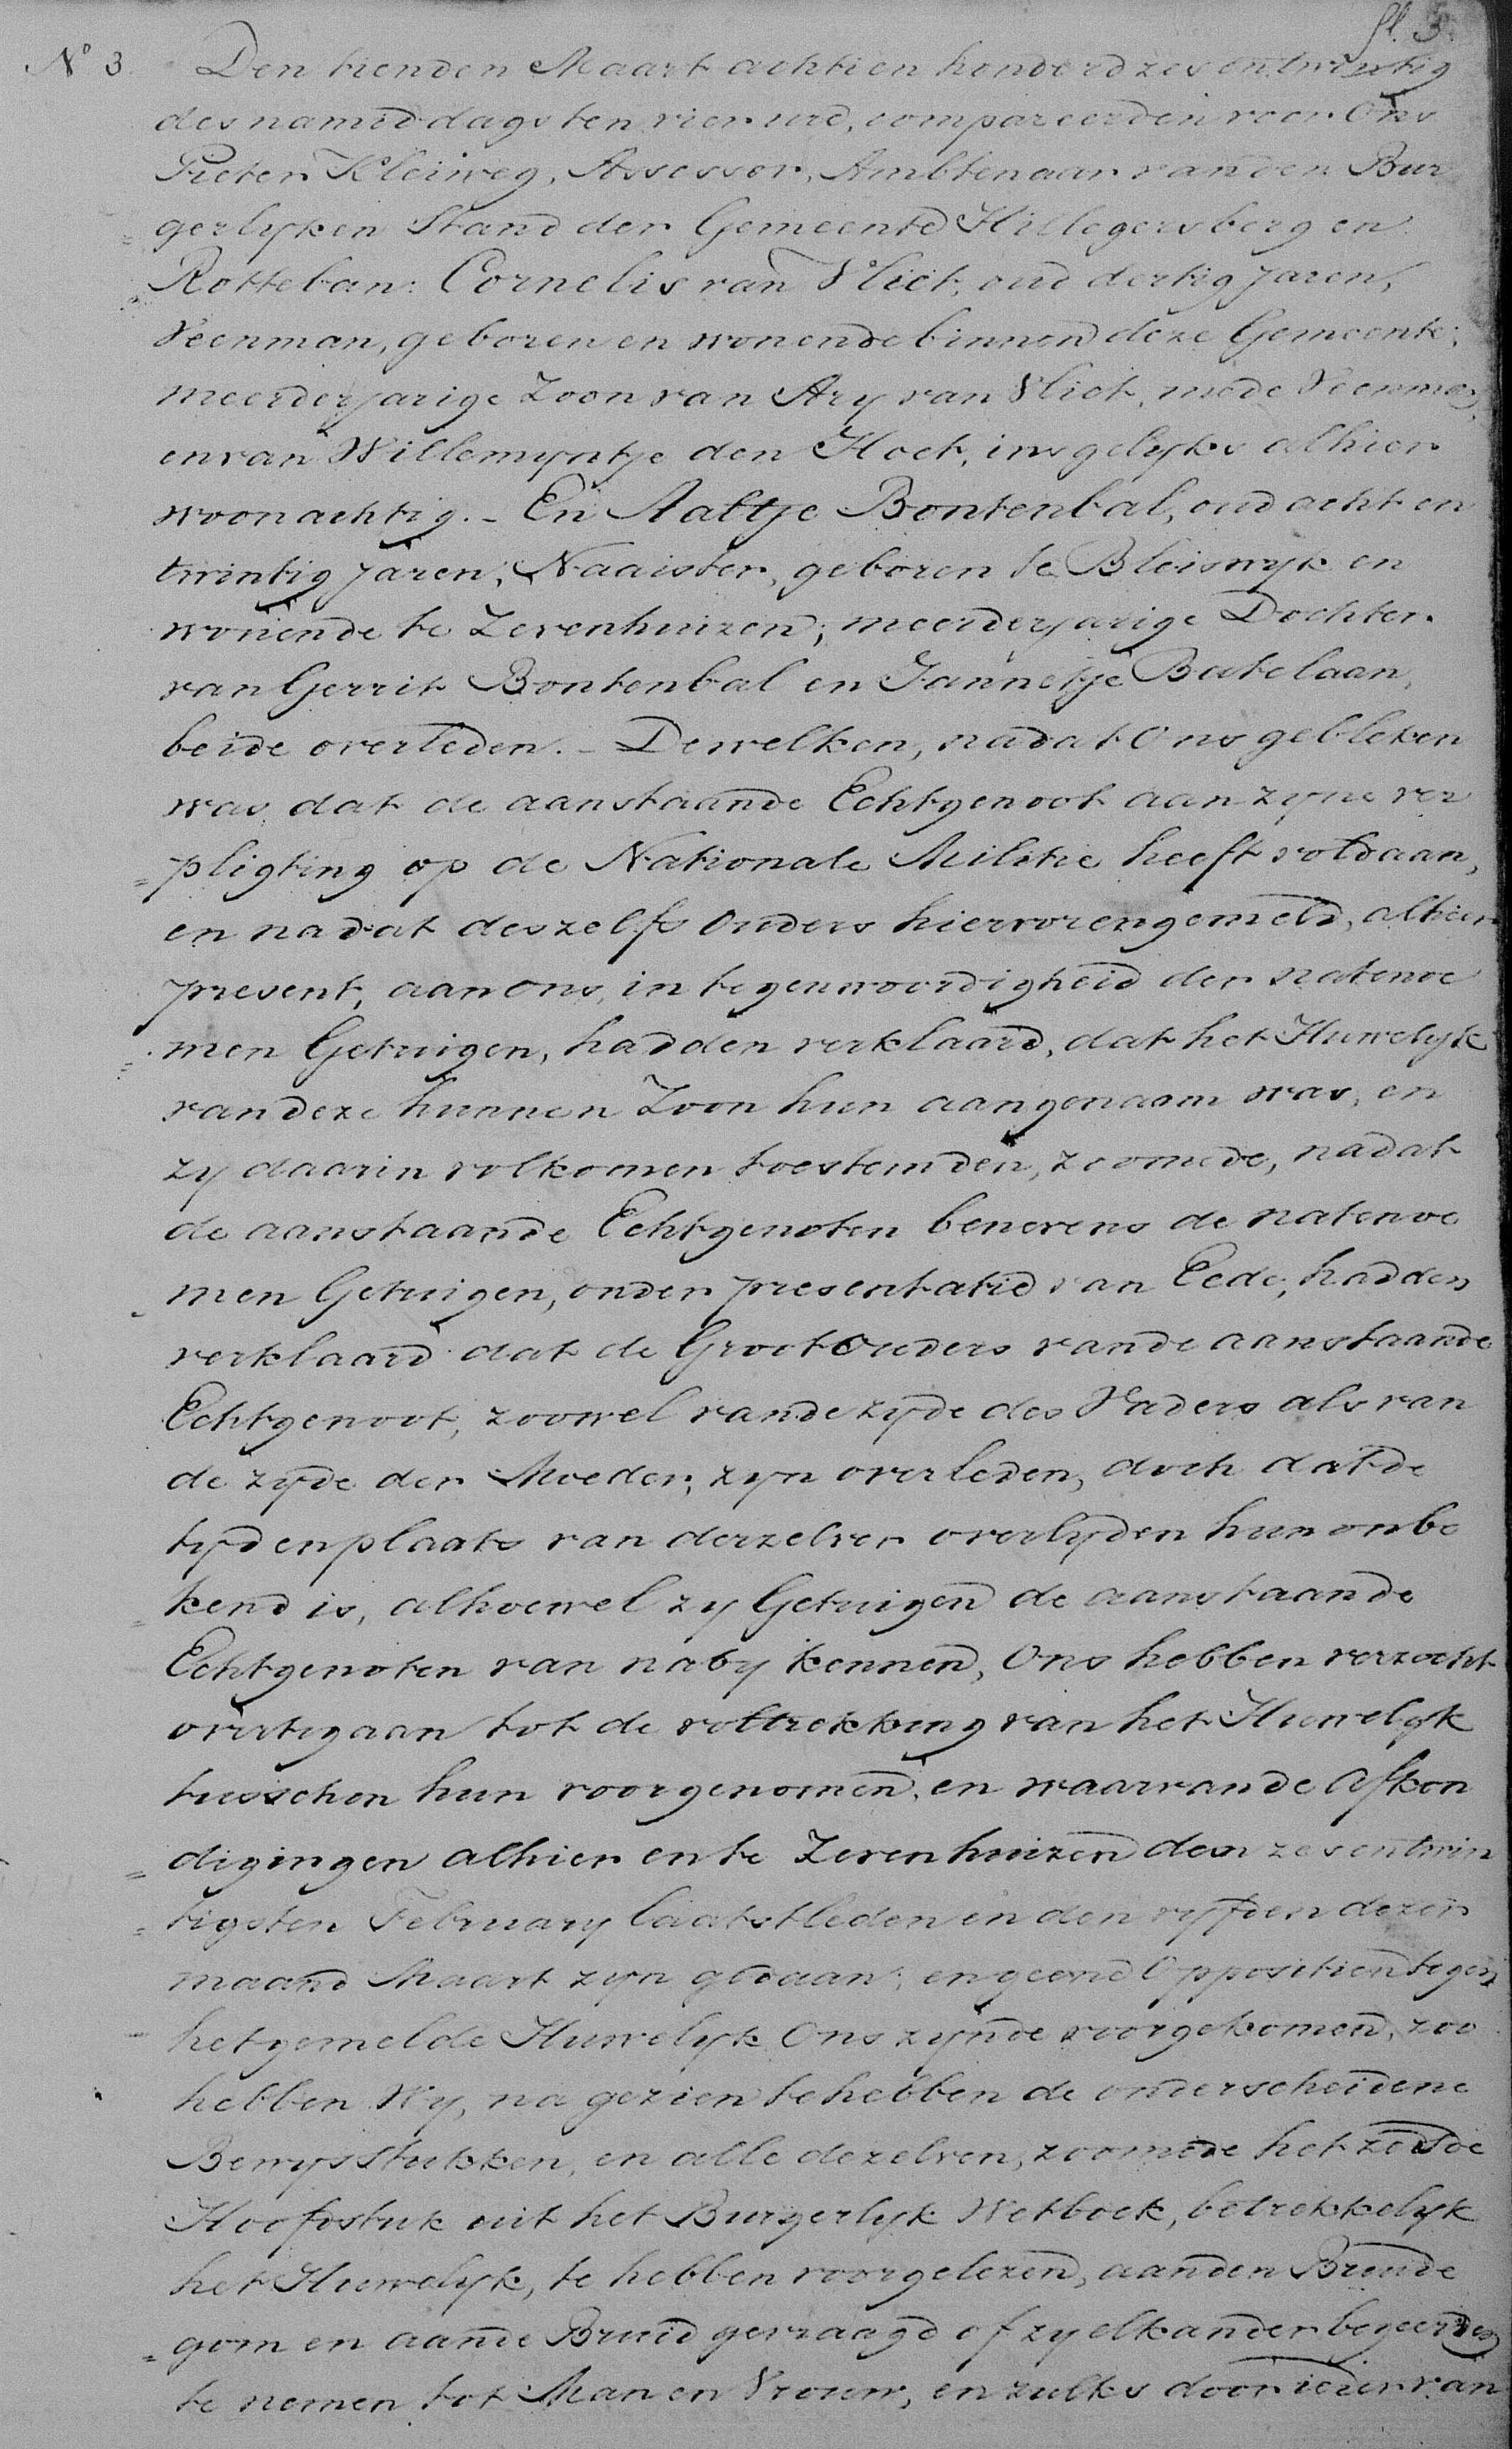 fl. 3.
N.o 3. Den tienden Maart achtien honderd zes en twintig
des namiddags ten vier ure, compareerden voor Ons
Pieter Kleiweg, Assessor, Ambtenaar van den Bur
= gerlyken Stand der Gemeente Hillegersberg en
Rotteban: Cornelis van Vliet, oud dertig jaren,
Veenman, geboren en wonende binnen deze Gemeente;
meerderjarige Zoon van Ary van Vliet, mede Veenman,
en van Willemyntje den Hoet, insgelyks alhier
woonachtig. - En Aaltje Bontenbal, oud acht en
twintig jaren, Naaister, geboren te Bleiswyk en
wonende te Zevenhuizen; meerderjarige Dochter
van Gerrit Bontenbal en Jannetje Batelaan,
beide overleden. - Dewelken, nadat Ons gebleken
was, dat de aanstaande Echtgenoot aan zyne ver
= pligting op de Nationale Militie heeft voldaan,
en nadat deszelfs Ouders hiervorengemeld, alhier
present, aan ons, in tegenwoordigheid der natenoe
= men Getuigen, hadden verklaard, dat het Huwelyk
van deze hunnen Zoon hun aangenaam was, en
zy daarin volkomen toestemden, zoomede, nadat
de aanstaande Echtgenoten benevens de natenoe
- men Getuigen, onder presentatie van Eede, hadden
verklaard dat de Grootouders van de aanstaande
Echtgenoot, zoowel van de zyde des Vaders als van
de zyde der Moeder, zyn overleden, doch dat de
tyd en plaats van derzelver overlyden hun onbe
= kend is, alhoewel zy Getuigen de aanstaande
Echtgenoten van naby kennen, Ons hebben verzocht
overtegaan tot de voltrekking van het Huwelyk
tusschen hun voorgenomen, en waarvan de Afkon
= digingen alhier en te Zevenhuizen den zesentwin
= tigsten February laatstleden en den vyfden dezer
maand Maart zyn gedaan; en geene Oppositien tegen
het gemelde Huwelyk Ons zynde voorgekomen, zoo
hebben Wy, na gezien te hebben de onderscheidene
Bewysstukken, en alle dezelven, zoomede het zesde
Hoofdstuk uit het Burgerlyk Wetboek, betrekkelyk
het Huwelyk, te hebben voorgelezen, aan den Bruide
= gom en aan de Bruid gevraagd of zy elkander begeerden
te nemen tot Man en Vrouw, en zulks door ieder van